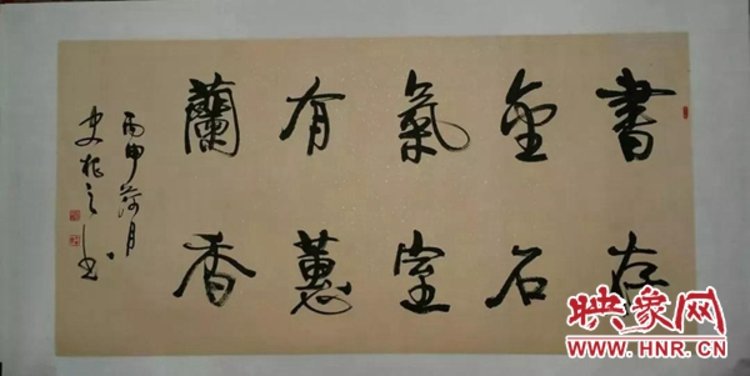 書存
金石
氣室
有蕙
蘭香
丙申荷月
史振之书
映象网
WWW.HNR.CN